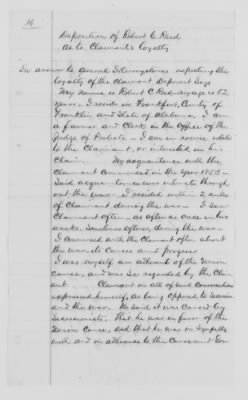 16
Deposition of Robert C. Reed
as to Claimant's loyalty
In answer to several Interrogatories respecting the
loyalty of the Claimant Deponent Says
My Name is Robert C Reed my age is 52
Years. I reside in Frankfort, County of
Franklin and State of Alabama. I am
a farmer and Clerk in the Office of the
Judge of Probate - I am in no wise related
to the Claimant, or interested in his
Claim. My acquaintance with the
Claimant Commenced in the Year 1853 -
Said acquaintance was intimate through
out the war. I resided within 2 miles
of Claimant during the war - I saw
Claimant often - as often as once in two
weeks. Sometimes oftener, during the war -
I conversed with the Claimant often about
the war its Causes and progress.
I was myself an adherent of the Union
cause, and was so regarded by the Claim
ant. Claimant on all of said conversations
expressed himself, as being opposed to Secession
and the war. He said it was caused by
Secessionists. That he was in favor of the
Union Cause, and that he was in Sympathy
with and in adherence to the